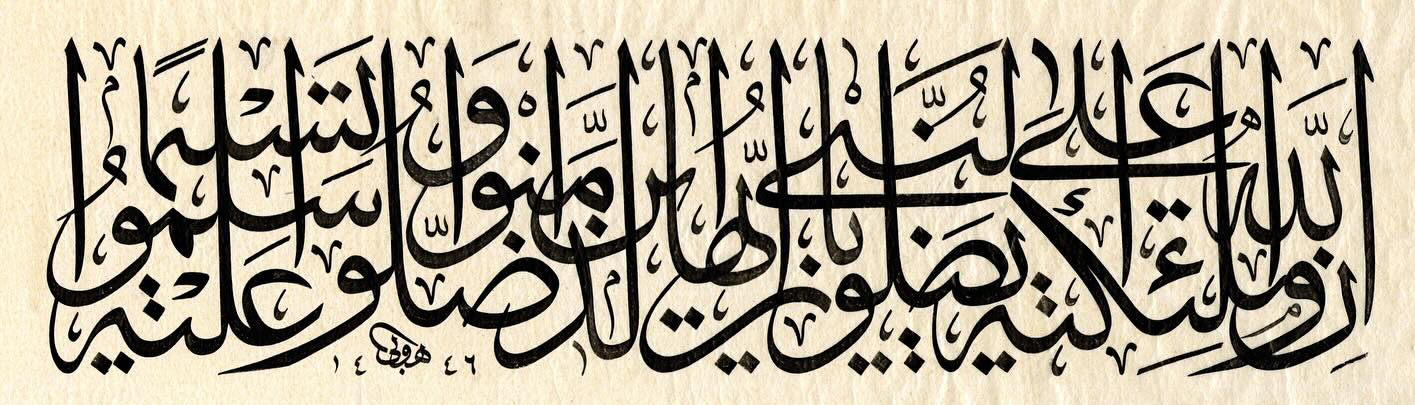 إن الله وملائكته يصلون على النبي يا أيها الذين آمنوا صلوا عليه وسلموا تسليما
١٤٤٦